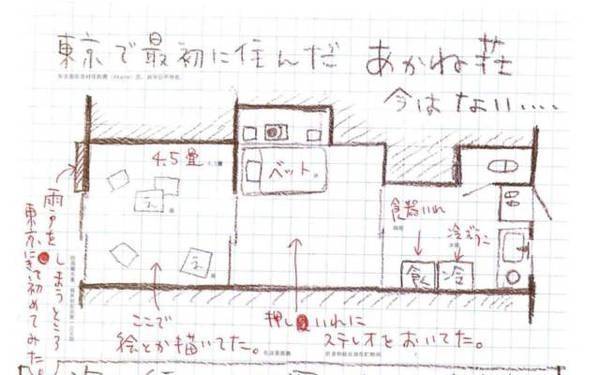 東京で最初に住んだ あかね荘
今はない‥‥
4.5畳
ベット。
え
え
食器いれ
冷ぞうこ
食
冷
ここで
絵とか描いてた。
押しいれに
ステレオをおいてた。
雨戸をしまうところ
東京にきて初めてみた